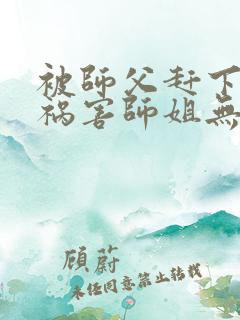 被師父赶下
祸害師姐無
顾蔚
未经同意禁止转载